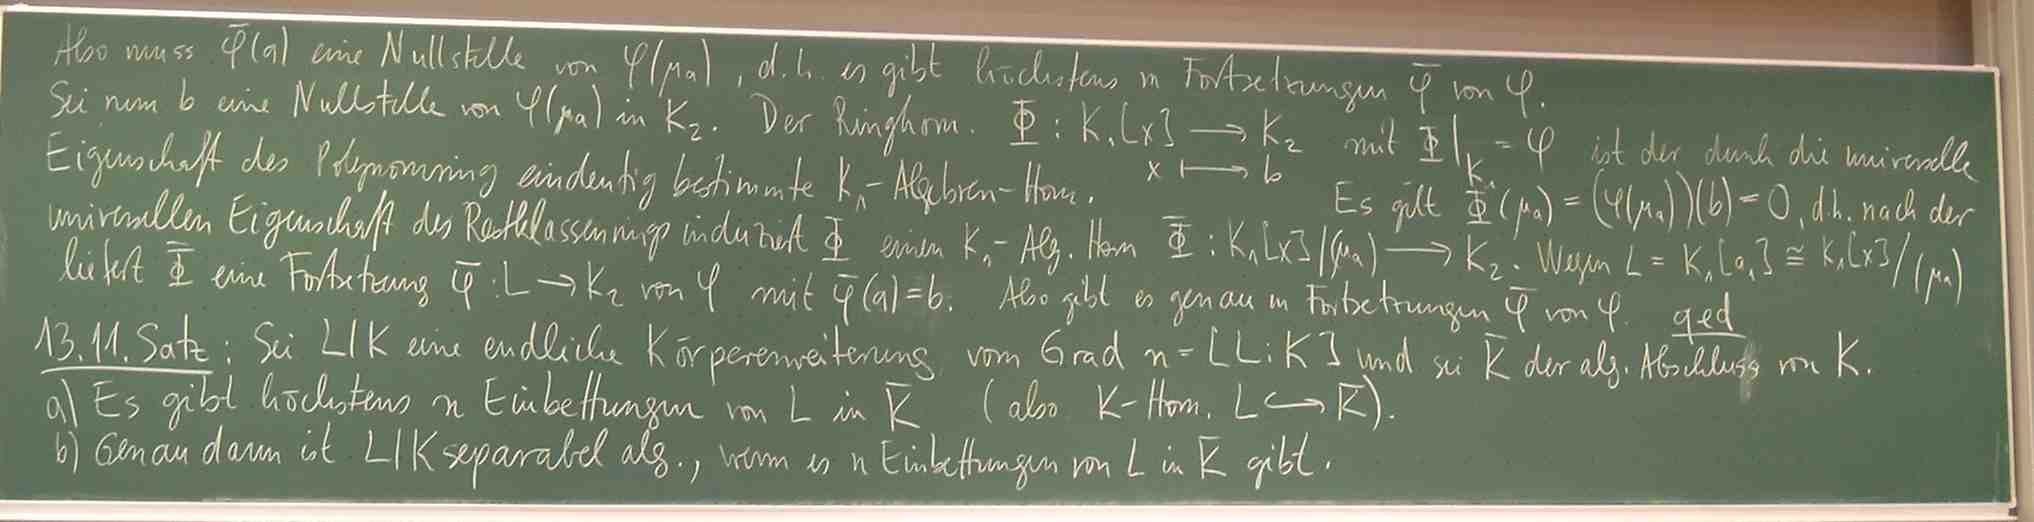 Also muss φ̄(a) eine Nullstelle von φ(μₐ), d.h. es gibt höchstens m Fortsetzungen φ̄ von φ.
Sei nun b eine Nullstelle von φ(μₐ) in K₂. Der Ringhom. Φ : K₁[x] ⟶ K₂ mit Φ|_K₁ = φ ist der durch die universelle
x ⟼ b
Eigenschaft des Polynomring eindeutig bestimmte K₁-Algebren-Hom. Es gilt Φ(μₐ) = (φ(μₐ))(b) = 0, d.h. nach der
universellen Eigenschaft des Restklassenrings induziert Φ einen K₁-Alg. Hom Φ̄ : K₁[x]/(μₐ) ⟶ K₂. Wegen L = K₁[a] ≅ K₁[x]/(μₐ)
liefert Φ̄ eine Fortsetzung φ̄ : L → K₂ von φ mit φ̄(a) = b. Also gibt es genau m Fortsetzungen φ̄ von φ. qed
13.11. Satz: Sei L/K eine endliche Körpererweiterung vom Grad n = [L:K] und sei K̄ der alg. Abschluss von K.
a) Es gibt höchstens n Einbettungen von L in K̄ (also K-Hom. L ↪ K̄).
b) Genau dann ist L/K separabel alg., wenn es n Einbettungen von L in K̄ gibt.